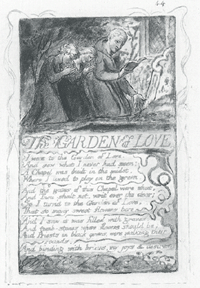 44
The GARDEN of LOVE
I went to the Garden of Love,
And saw what I never had seen:
A Chapel was built in the midst,
Where I used to play on the green.
And the gates of this Chapel were shut,
And Thou shalt not. writ over the door;
So I turn'd to the Garden of Love,
That so many sweet flowers bore,
And I saw it was filled with graves,
And tomb-stones where flowers should be:
And Priests in black gowns, were walking their
rounds,
And binding with briars, my joys & desires.